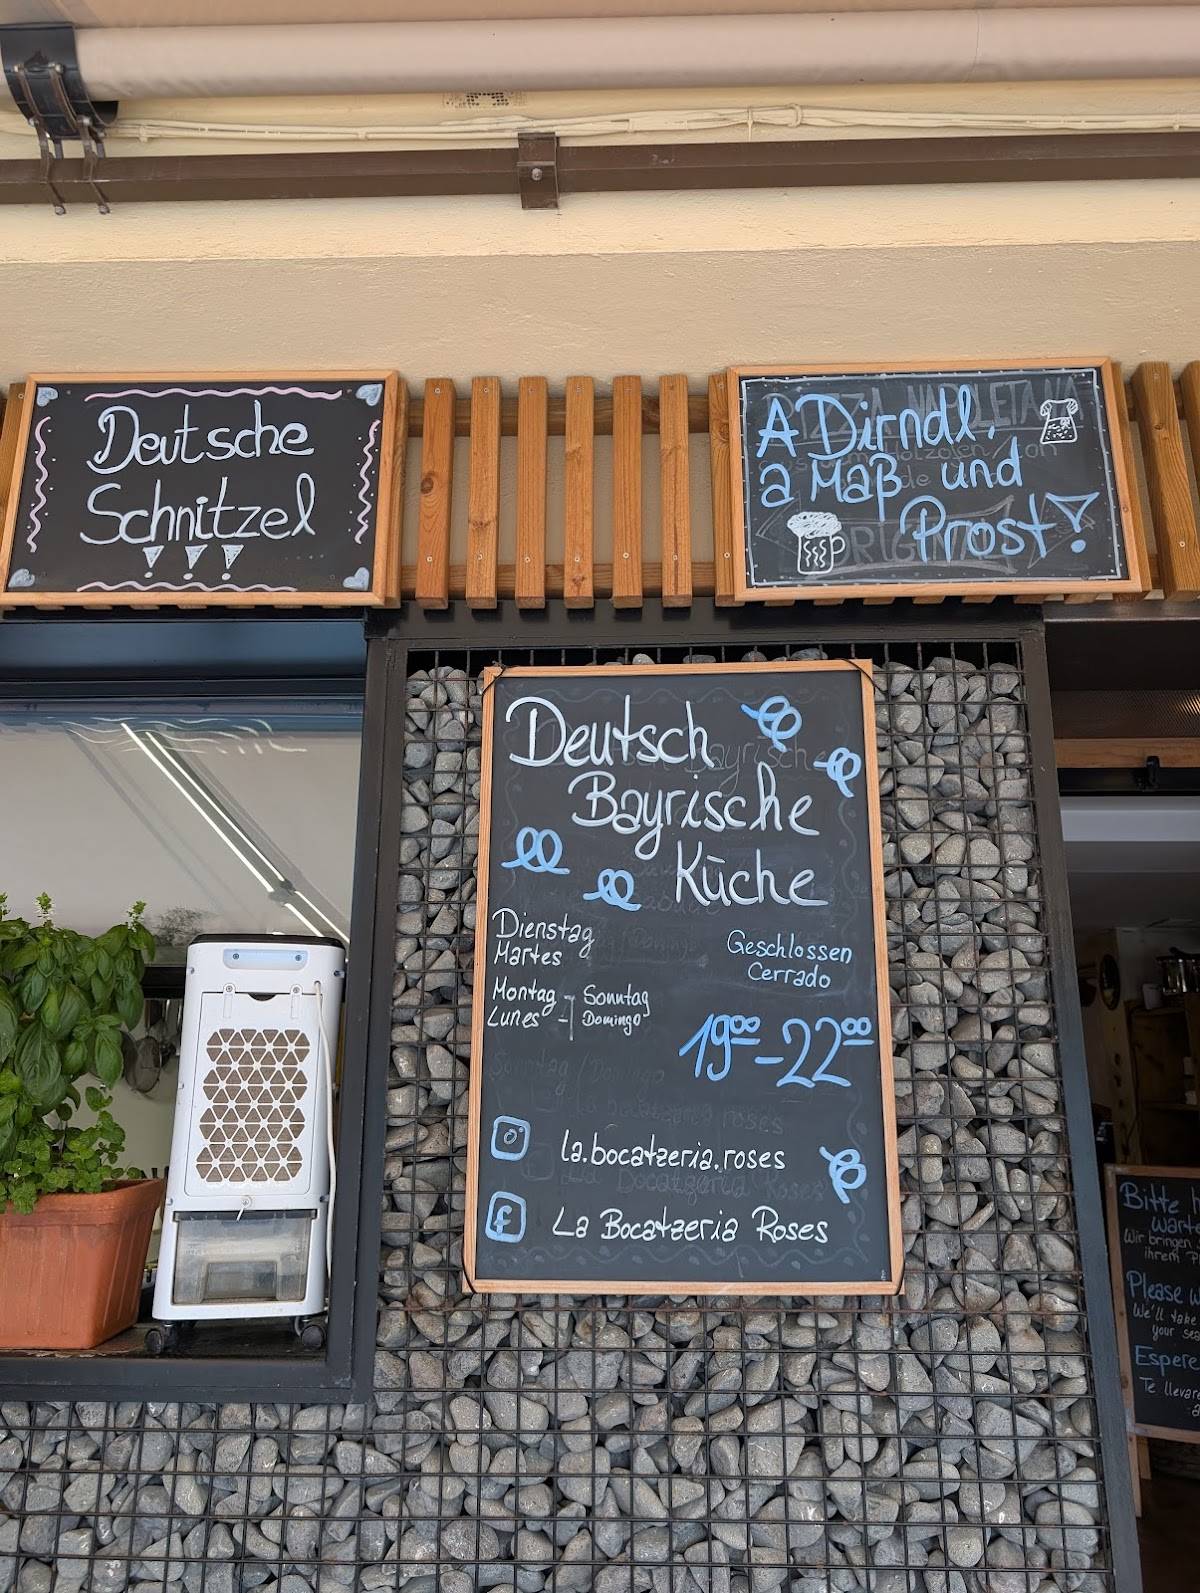 Deutsche
Schnitzel
!!!
A Dirndl,
a Maß und
Prost!
Deutsch
Bayrische
Küche
Dienstag
Martes
Geschlossen
Cerrado
Montag - Sonntag
Lunes - Domingo
19⁰⁰-22⁰⁰
la.bocatzeria.roses
La Bocatzeria Roses
Bitte
Wir bringen
Please
We'll take
your
Te